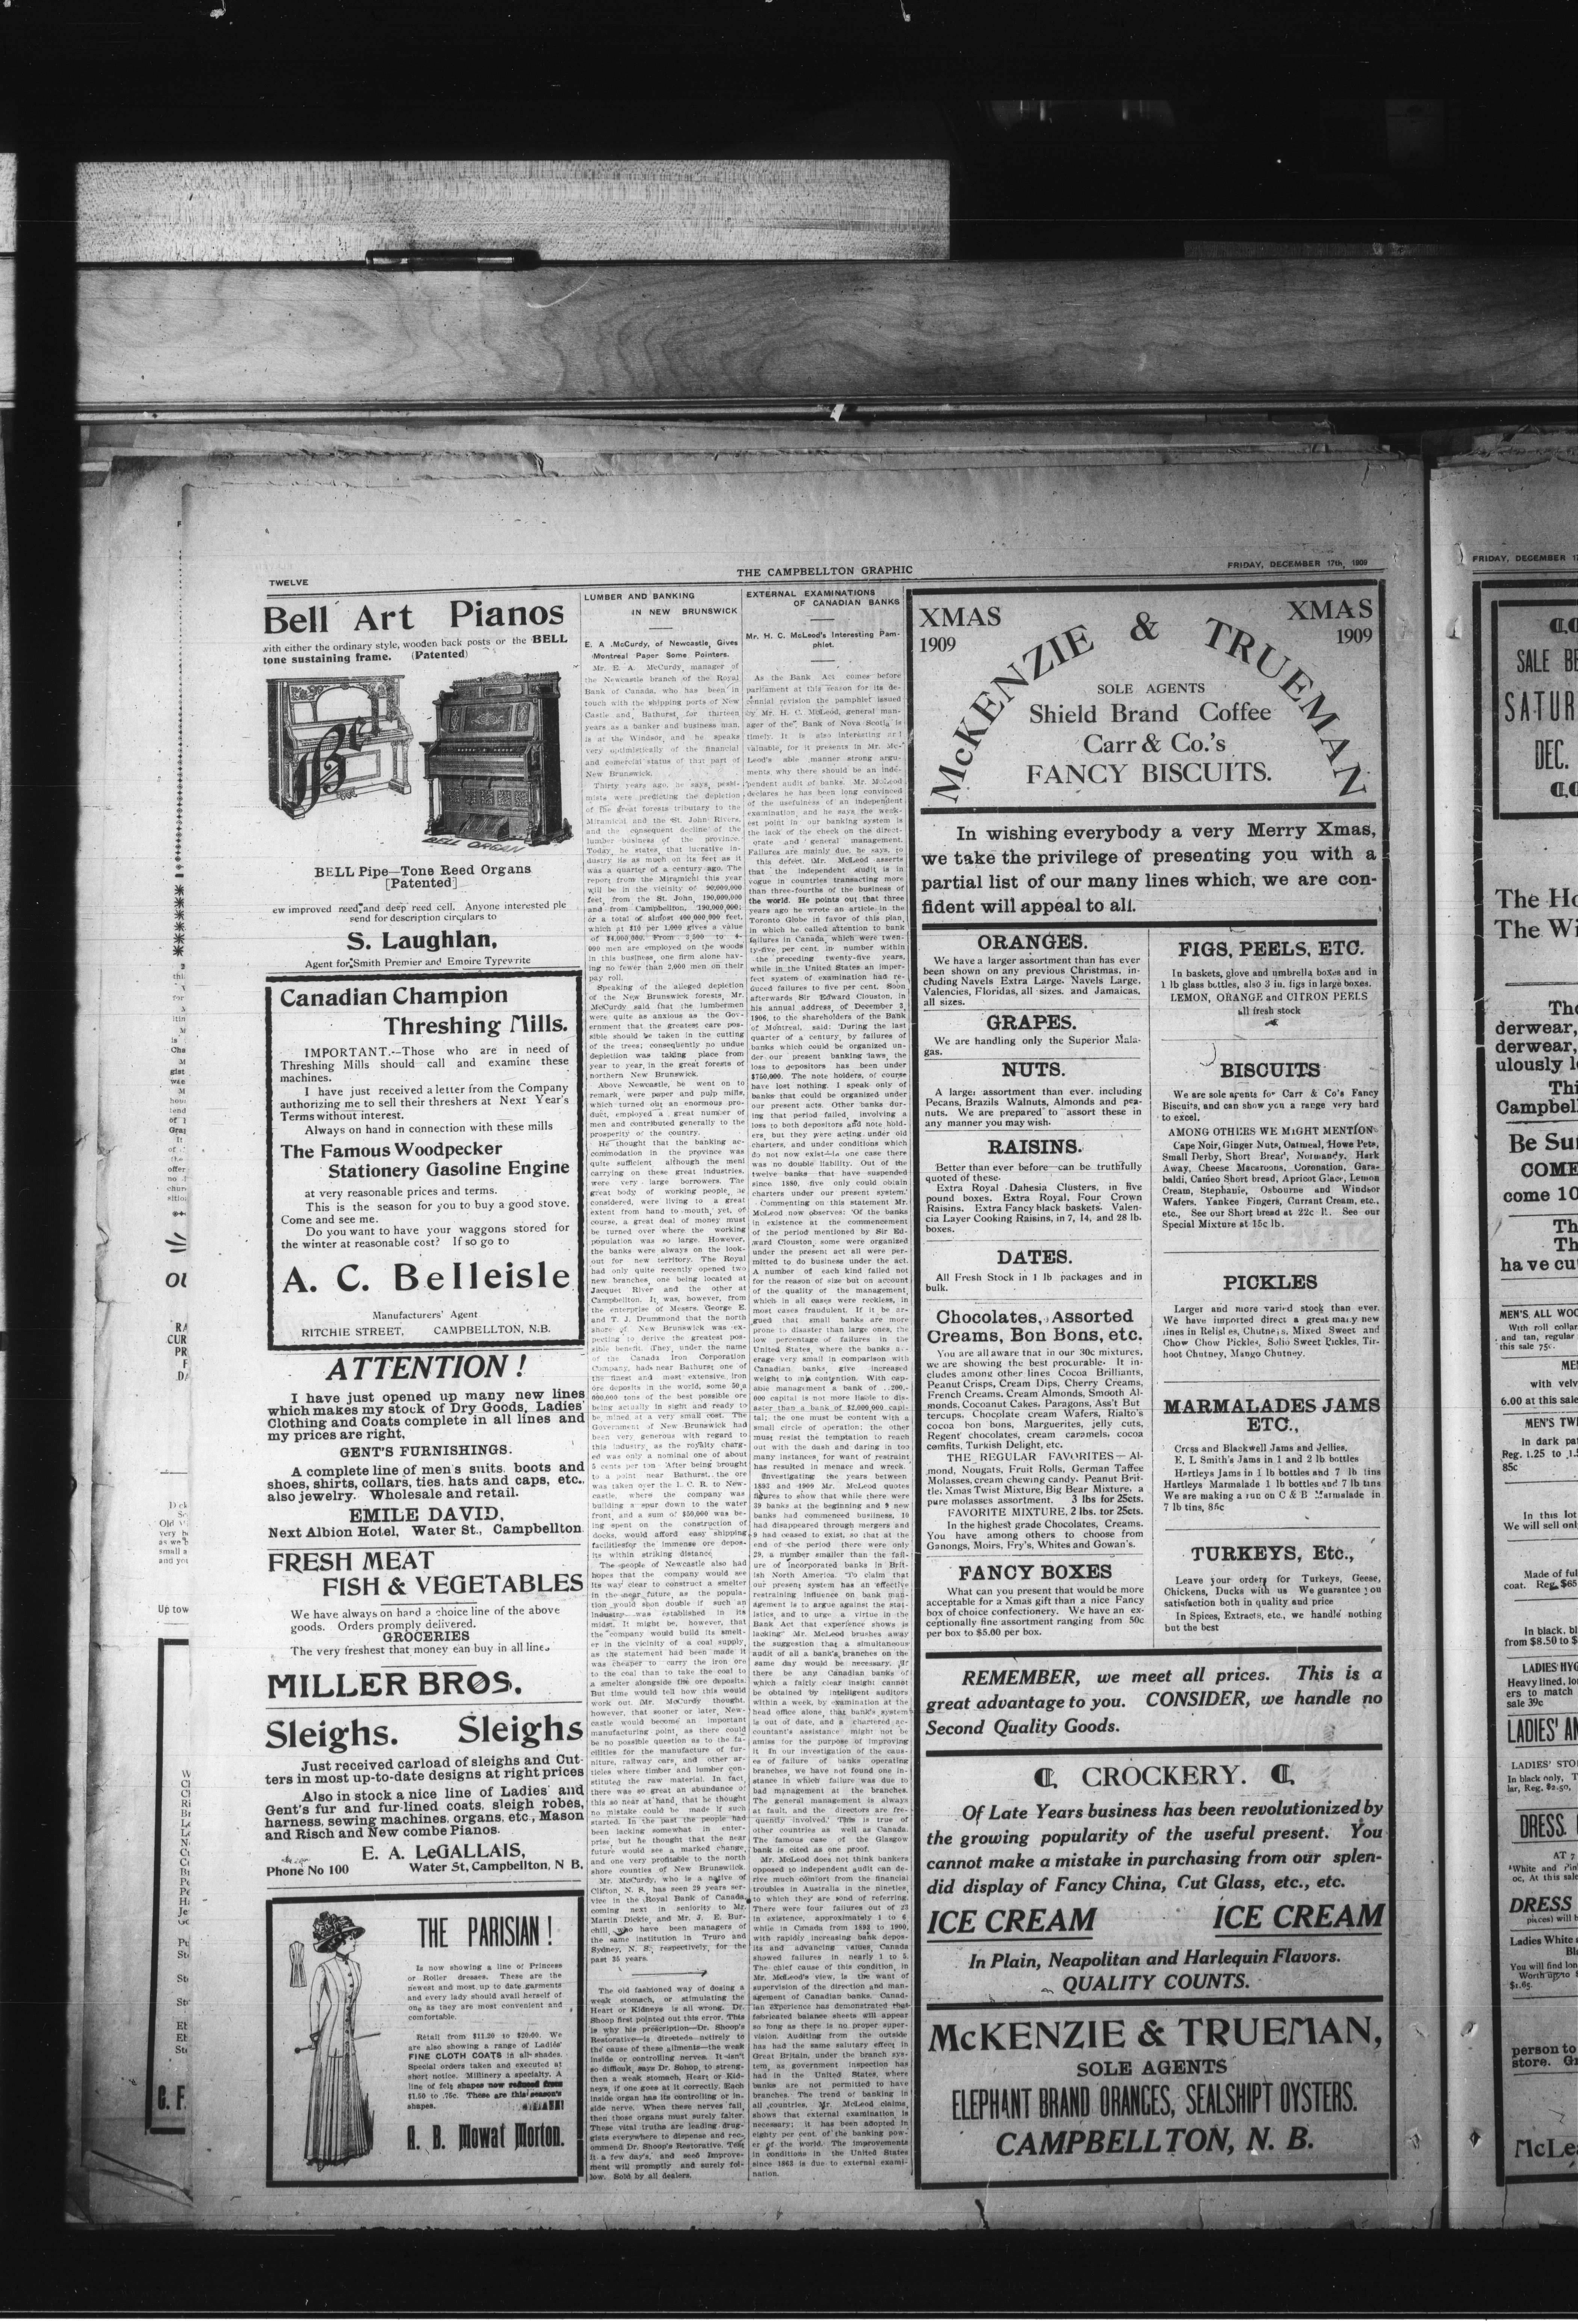 TWELVE
THE CAMPBELLTON GRAPHIC
FRIDAY, DECEMBER 17th, 1909
Bell Art Pianos
with either the ordinary style, wooden back posts or the BELL
tone sustaining frame. (Patented)
BELL ORGAN
BELL Pipe—Tone Reed Organs
[Patented]
ew improved reed and deep reed cell. Anyone interested ple
send for description circulars to
S. Laughlan,
Agent for Smith Premier and Empire Typewrite
Canadian Champion
Threshing Mills.
IMPORTANT.--Those who are in need of
Threshing Mills should call and examine these
machines.
I have just received a letter from the Company
authorizing me to sell their threshers at Next Year's
Terms without interest.
Always on hand in connection with these mills
The Famous Woodpecker
Stationery Gasoline Engine
at very reasonable prices and terms.
This is the season for you to buy a good stove.
Come and see me.
Do you want to have your waggons stored for
the winter at reasonable cost? If so go to
A. C. Belleisle
Manufacturers' Agent
RITCHIE STREET, CAMPBELLTON, N.B.
ATTENTION !
I have just opened up many new lines
which makes my stock of Dry Goods, Ladies'
Clothing and Coats complete in all lines and
my prices are right,
GENT'S FURNISHINGS.
A complete line of men's suits, boots and
shoes, shirts, collars, ties, hats and caps, etc.,
also jewelry. Wholesale and retail.
EMILE DAVID,
Next Albion Hotel, Water St., Campbellton.
FRESH MEAT
FISH & VEGETABLES
We have always on hand a choice line of the above
goods. Orders promply delivered.
GROCERIES
The very freshest that money can buy in all lines
MILLER BROS.
Sleighs. Sleighs
Just received carload of sleighs and Cut-
ters in most up-to-date designs at right prices
Also in stock a nice line of Ladies' and
Gent's fur and fur-lined coats, sleigh robes,
harness, sewing machines, organs, etc., Mason
and Risch and New combe Pianos.
E. A. LeGALLAIS,
Phone No 100 Water St, Campbellton, N B.
THE PARISIAN !
Is now showing a line of Princess
or Roller dresses. These are the
newest and most up to date garments
and every lady should avail herself of
one as they are most convenient and
comfortable.
Retail from $11.20 to $20.00. We
are also showing a range of Ladies'
FINE CLOTH COATS in all shades.
Special orders taken and executed at
short notice. Millinery a specialty. A
line of felt shapes now reduced from
$1.50 to .75c. These are this season's
shapes.
A. B. Mowat Morton.
LUMBER AND BANKING
IN NEW BRUNSWICK
E. A. McCurdy, of Newcastle, Gives
Montreal Paper Some Pointers.
Mr. E. A. McCurdy, manager of
the Newcastle branch of the Royal
Bank of Canada, who has been in
touch with the shipping ports of New
Castle and Bathurst for thirteen
years as a banker and business man,
is at the Windsor, and he speaks
very optimistically of the financial
and comercial status of that part of
New Brunswick.
Thirty years ago, he says, pessi-
mists were predicting the depletion
of the great forests tributary to the
Miramichi and the St. John Rivers,
and the consequent decline of the
lumber business of the province.
Today, he states, that lucrative in-
dustry is as much on its feet as it
was a quarter of a century ago. The
report from the Miramichi this year
will be in the vicinity of 90,000,000
feet, from the St. John, 190,000,000
and from Campbellton, 190,000,000;
or a total of almost 400,000,000 feet,
which at $10 per 1,000 gives a value
of $4,000,000. From 3,500 to 4-
000 men are employed on the woods
in this business, one firm alone hav-
ing no fewer than 2,000 men on their
pay roll.
Speaking of the alleged depletion
of the New Brunswick forests, Mr.
McCurdy said that the lumbermen
were quite as anxious as the Gov-
ernment that the greatest care pos-
sible should be taken in the cutting
of the trees; consequently no undue
depletion was taking place from
year to year in the great forests of
northern New Brunswick.
Above Newcastle, he went on to
remark, were paper and pulp mills,
which turned out an enormous pro-
duct, employed a great number of
men and contributed generally to the
prosperity of the country.
He thought that the banking ac-
commodation in the province was
quite sufficient, although the men
carrying on these great industries,
were very large borrowers. The
great body of working people, he
considered, were living to a great
extent from hand to mouth, yet, of
course, a great deal of money must
be turned over where the working
population was so large. However,
the banks were always on the look-
out for new territory. The Royal
had only quite recently opened two
new branches, one being located at
Jacquet River and the other at
Campbellton. It was, however, from
the enterprise of Messrs. George E.
and T. J. Drummond that the north
shore of New Brunswick was ex-
pecting to derive the greatest pos-
sible benefit. They, under the name
of the Canada Iron Corporation
Company, hads near Bathurst one of
the finest and most extensive iron
ore deposits in the world, some 50,-
000,000 tons of the best possible ore
being actually in sight and ready to
be mined at a very small cost. The
Government of New Brunswick had
been very generous with regard to
this industry, as the royalty charg-
ed was only a nominal one of about
5 cents per ton. After being brought
to a point near Bathurst, the ore
was taken over the I. C. R. to New-
castle, where the company was
building a spur down to the water
front, and a sum of $50,000 was be-
ing spent on the construction of
docks, would afford easy shipping
facilitiesfor the immense ore depos-
its within striking distance.
The people of Newcastle also had
hopes that the company would see
its way clear to construct a smelter
in the near future, as the popula-
tion would soon double if such an
industry was established in its
midst. It might be, however, that
the company would build its smelt-
er in the vicinity of a coal supply,
as the statement had been made it
was cheaper to carry the iron ore
to the coal than to take the coal to
a smelter alongside the ore deposits.
But time would tell how this would
work out. Mr. McCurdy thought,
however, that sooner or later, New-
castle would become an important
manufacturing point, as there could
be no possible question as to the fa-
cilities for the manufacture of fur-
niture, railway cars, and other ar-
ticles where timber and lumber con-
stituted the raw material. In fact,
there was so great an abundance of
this so near at hand, that he thought
no mistake could be made if such
started. In the past the people had
been lacking somewhat in enter-
prise, but he thought that the near
future would see a marked change,
and one very profitable to the north
shore counties of New Brunswick.
Mr. McCurdy, who is a native of
Clifton, N. S., has seen 29 years ser-
vice in the Royal Bank of Canada,
coming next in seniority to Mr.
Martin Dickie, and Mr. J. E. Bur-
chill, who have been managers of
the same institution in Truro and
Sydney, N. S., respectively, for the
past 35 years.
The old fashioned way of dosing a
weak stomach, or stimulating the
Heart or Kidneys is all wrong. Dr.
Shoop first pointed out this error. This
is why his prescription—Dr. Shoop's
Restorative—is directede entirely to
the cause of these ailments—the weak
inside or controlling nerves. It isn't
so difficult, says Dr. Shoop, to streng-
then a weak stomach, Heart or Kid-
neys, if one goes at it correctly. Each
inside organ has its controlling or in-
side nerve. When these nerves fail,
then those organs must surely falter.
These vital truths are leading drug-
gists everywhere to dispense and rec-
ommend Dr. Shoop's Restorative. Test
it a few day's, and seed improve-
ment will promptly and surely fol-
low. Sold by all dealers.
EXTERNAL EXAMINATIONS
OF CANADIAN BANKS
Mr. H. C. McLeod's Interesting Pam-
phlet.
As the Bank Act comes before
parliament at this season for its de-
cennial revision the pamphlet issued
by Mr. H. C. McLeod, general man-
ager of the Bank of Nova Scotia is
timely. It is also interesting and
valuable, for it presents in Mr. Mc-
Leod's able manner strong argu-
ments why there should be an inde-
pendent audit of banks. Mr. McLeod
declares he has been long convinced
of the usefulness of an independent
examination, and he says the weak-
est point in our banking system is
the lack of the check on the direct-
orate and general management.
Failures are mainly due, he says, to
this defect. Mr. McLeod asserts
that the independent audit is in
vogue in countries transacting more
than three-fourths of the business of
the world. He points out that three
years ago he wrote an article in the
Toronto Globe in favor of this plan,
in which he called attention to bank
failures in Canada, which were twen-
ty-five per cent. in number within
the preceding twenty-five years,
while in the United States an imper-
fect system of examination had re-
duced failures to five per cent. Soon
afterwards Sir Edward Clouston, in
his annual address, of December 3,
1906, to the shareholders of the Bank
of Montreal, said: 'During the last
quarter of a century, by failures of
banks which could be organized un-
der our present banking laws, the
loss to depositors has been under
$750,000. The note holders, of course
have lost nothing. I speak only of
banks that could be organized under
our present acts. Other banks dur-
ing that period failed, involving a
loss to both depositors and note hold-
ers, but they were acting under old
charters, and under conditions which
do not now exist—in one case there
was no double liability. Out of the
twelve banks that have suspended
since 1880, five only could obtain
charters under our present system.'
Commenting on this statement Mr.
McLeod now observes: 'Of the banks
in existence at the commencement
of the period mentioned by Sir Ed-
ward Clouston, some were organized
under the present act all were per-
mitted to do business under the act.
A number of each kind failed not
for the reason of size but on account
of the quality of the management,
which in all cases were reckless, in
most cases fraudulent. If it be ar-
gued that small banks are more
prone to disaster than large ones, the
low percentage of failures in the
United States, where the banks av-
erage very small in comparison with
Canadian banks, give increased
weight to my contention. With cap-
able management a bank of
000 capital is not more liable to dis-
aster than a bank of $2,000,000 capi-
tal; the one must be content with a
small circle of operation; the other
must resist the temptation to reach
out with the dash and daring in too
many instances, for want of restraint
has resulted in menace and wreck.
Investigating the years between
1893 and 1909 Mr. McLeod quotes
figures to show that while there were
39 banks at the beginning and 9 new
banks had commenced business, 10
had disappeared through mergers and
9 had ceased to exist, so that at the
end of the period there were only
29, a number smaller than the fail-
ure of incorporated banks in Brit-
ish North America. 'To claim that
our present system has an effective
restraining influence on bank man-
agement is to argue against the stat-
istics, and to urge a virtue in the
Bank Act that experience shows is
lacking' Mr. McLeod brushes away
the suggestion that a simultaneous
audit of all a bank's branches on the
same day would be necessary. 'If
there be any Canadian banks of
which a fairly clear insight cannot
be obtained by intelligent auditors
within a week, by examination at the
head office alone, that bank's system
is out of date, and a chartered ac-
countant's assistance might not be
amiss for the purpose of improving
it In our investigation of the caus-
es of failure of banks operating
branches, we have not found one in-
stance in which failure was due to
bad management at the branches.
The general management is always
at fault, and the directors are fre-
quently involved.' This is true of
other countries as well as Canada.
The famous case of the Glasgow
bank is cited as one proof.
Mr. McLeod does not think bankers
opposed to independent audit can de-
rive much comfort from the financial
troubles in Australia in the nineties,
to which they are sond of referring.
There were four failures out of 23
in existence, approximately 1 to 6
while in Canada from 1893 to 1900,
with rapidly increasing bank depos-
its and advancing values, Canada
showed failures in nearly 1 to 5.
The chief cause of this condition, in
Mr. McLeod's view, is the want of
supervision of the direction and man-
agement of Canadian banks. 'Canad-
ian experience has demonstrated that
fabricated balance sheets will appear
so long as there is no proper super-
vision. Auditing from the outside
has had the same salutary effect in
Great Britain, under the branch sys-
tem, as government inspection has
had in the United States, where
banks are not permitted to have
branches. The trend of banking in
all countries, Mr. McLeod claims,
shows that external examination is
necessary; it has been adopted in
eighty per cent. of the banking pow-
er of the world. The improvements
in conditions in the United States
since 1863 is due to external exami-
nation.
XMAS 1909
XMAS 1909
McKENZIE & TRUEMAN
SOLE AGENTS
Shield Brand Coffee
Carr & Co.'s
FANCY BISCUITS.
In wishing everybody a very Merry Xmas,
we take the privilege of presenting you with a
partial list of our many lines which, we are con-
fident will appeal to all.
ORANGES.
We have a larger assortment than has ever
been shown on any previous Christmas, in-
cluding Navels Extra Large, Navels Large,
Valencies, Floridas, all sizes, and Jamaicas,
all sizes.
GRAPES.
We are handling only the Superior Mala-
gas.
NUTS.
A large assortment than ever, including
Pecans, Brazils Walnuts, Almonds and pea-
nuts. We are prepared to assort these in
any manner you may wish.
RAISINS.
Better than ever before—can be truthfully
quoted of these.
Extra Royal Dahesia Clusters, in five
pound boxes. Extra Royal, Four Crown
Raisins. Extra Fancy black baskets. Valen-
cia Layer Cooking Raisins, in 7, 14, and 28 lb.
boxes.
DATES.
All Fresh Stock in 1 lb packages and in
bulk.
Chocolates, Assorted
Creams, Bon Bons, etc.
You are all aware that in our 30c mixtures,
we are showing the best procurable. It in-
cludes among other lines Cocoa Brilliants,
Peanut Crisps, Cream Dips, Cherry Creams,
French Creams, Cream Almonds, Smooth Al-
monds, Cocoanut Cakes, Paragons, Ass't But
tercups, Chocolate cream Wafers, Rialto's
cocoa bon bons, Marguerites, jelly cuts,
Regent chocolates, cream caramels, cocoa
comfits, Turkish Delight, etc.
THE REGULAR FAVORITES — Al-
mond, Nougats, Fruit Rolls, German Taffee
Molasses, cream chewing candy, Peanut Brit-
tle, Xmas Twist Mixture, Big Bear Mixture, a
pure molasses assortment. 3 lbs for 25cts.
FAVORITE MIXTURE, 2 lbs. tor 25cts.
In the highest grade Chocolates, Creams.
You have among others to choose from
Ganongs, Moirs, Fry's, Whites and Gowan's.
FANCY BOXES
What can you present that would be more
acceptable for a Xmas gift than a nice Fancy
box of choice confectionery. We have an ex-
ceptionally fine assortment ranging from 50c
per box to $5.00 per box.
FIGS, PEELS, ETC.
In baskets, glove and umbrella boxes and in
1 lb glass bottles, also 3 in. figs in large boxes.
LEMON, ORANGE and CITRON PEELS
all fresh stock
BISCUITS
We are sole agents for Carr & Co's Fancy
Biscuits, and can show you a range very hard
to excel.
AMONG OTHERS WE MIGHT MENTION
Cape Noir, Ginger Nuts, Oatmeal, Howe Pets,
Small Derby, Short Bread, Normandy, Hark
Away, Cheese Macaroons, Coronation, Gara-
baldi, Cameo Short bread, Apricot Glace, Lemon
Cream, Stephanie, Osbourne and Windsor
Wafers, Yankee Fingers, Currant Cream, etc.,
etc., See our Short bread at 22c lb. See our
Special Mixture at 15c lb.
PICKLES
Larger and more varied stock than ever.
We have imported direct a great many new
lines in Relishes, Chutneys, Mixed Sweet and
Chow Chow Pickles, Soho Sweet Pickles, Tir-
hoot Chutney, Mango Chutney.
MARMALADES JAMS
ETC.,
Cross and Blackwell Jams and Jellies.
E. L Smith's Jams in 1 and 2 lb bottles
Hartleys Jams in 1 lb bottles and 7 lb tins
Hartleys Marmalade 1 lb bottles and 7 lb tins
We are making a run on C & B Marmalade in
7 lb tins, 85c
TURKEYS, Etc.,
Leave your orders for Turkeys, Geese,
Chickens, Ducks with us We guarantee you
satisfaction both in quality and price
In Spices, Extracts, etc., we handle nothing
but the best
REMEMBER, we meet all prices. This is a
great advantage to you. CONSIDER, we handle no
Second Quality Goods.
CROCKERY.
Of Late Years business has been revolutionized by
the growing popularity of the useful present. You
cannot make a mistake in purchasing from our splen-
did display of Fancy China, Cut Glass, etc., etc.
ICE CREAM ICE CREAM
In Plain, Neapolitan and Harlequin Flavors.
QUALITY COUNTS.
McKENZIE & TRUEMAN,
SOLE AGENTS
ELEPHANT BRAND ORANGES, SEALSHIPT OYSTERS.
CAMPBELLTON, N. B.
FRIDAY, DECEMBER 17
SALE BE
SATUR
DEC.
The Ho
The Wi
derwear,
derwear,
ulously l
Campbel
Be Su
COME
come 10
ha ve cu
MEN'S ALL WOO
With roll collar
and tan, regular
this sale 75c.
with velv
6.00 at this sale
MEN'S TW
In dark pa
Reg. 1.25 to 1.5
85c
In this lot
We will sell onl
Made of ful
coat. Reg. $65
In black, bl
from $8.50 to $
LADIES' HYG
Heavy lined, lo
ers to match
sale 39c
LADIES' AN
LADIES' STO
In black only, T
lar, Reg. $2.50,
DRESS
AT 7
DRESS
pieces) will b
Ladies White
You will find lon
Worth up to $
$1.65.
person to
store. G
McLe